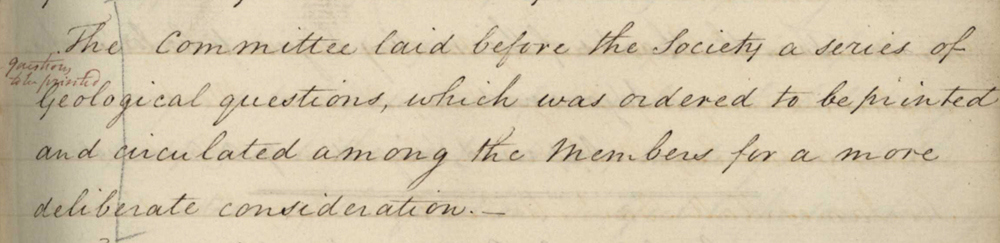 The Committee laid before the Society a series of
questions
to be printed
Geological questions, which was ordered to be printed
and circulated among the Members for a more
deliberate consideration. —